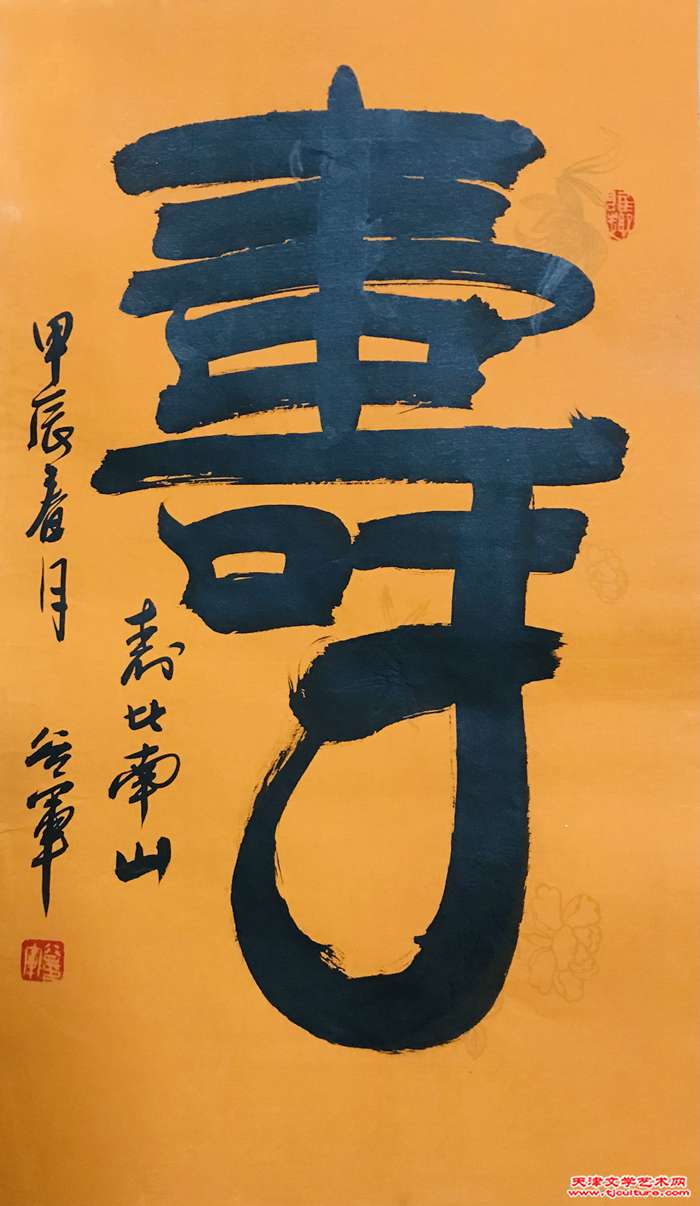 壽
寿比南山
甲辰春月 谷軍
天津文学艺术网
www.tjculture.com